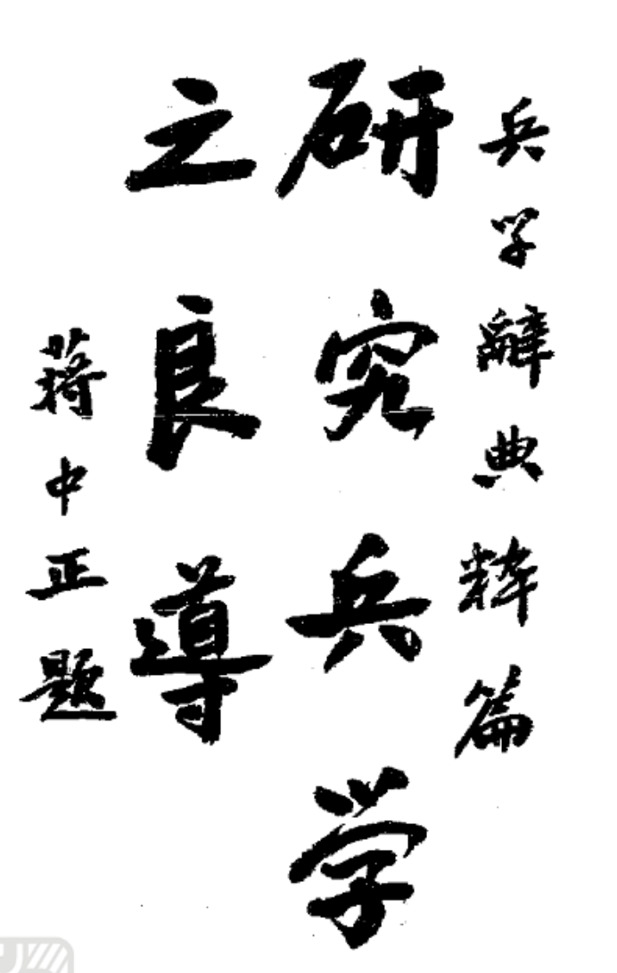 兵学辭典粹篇
研究兵学
之良導
蒋中正题